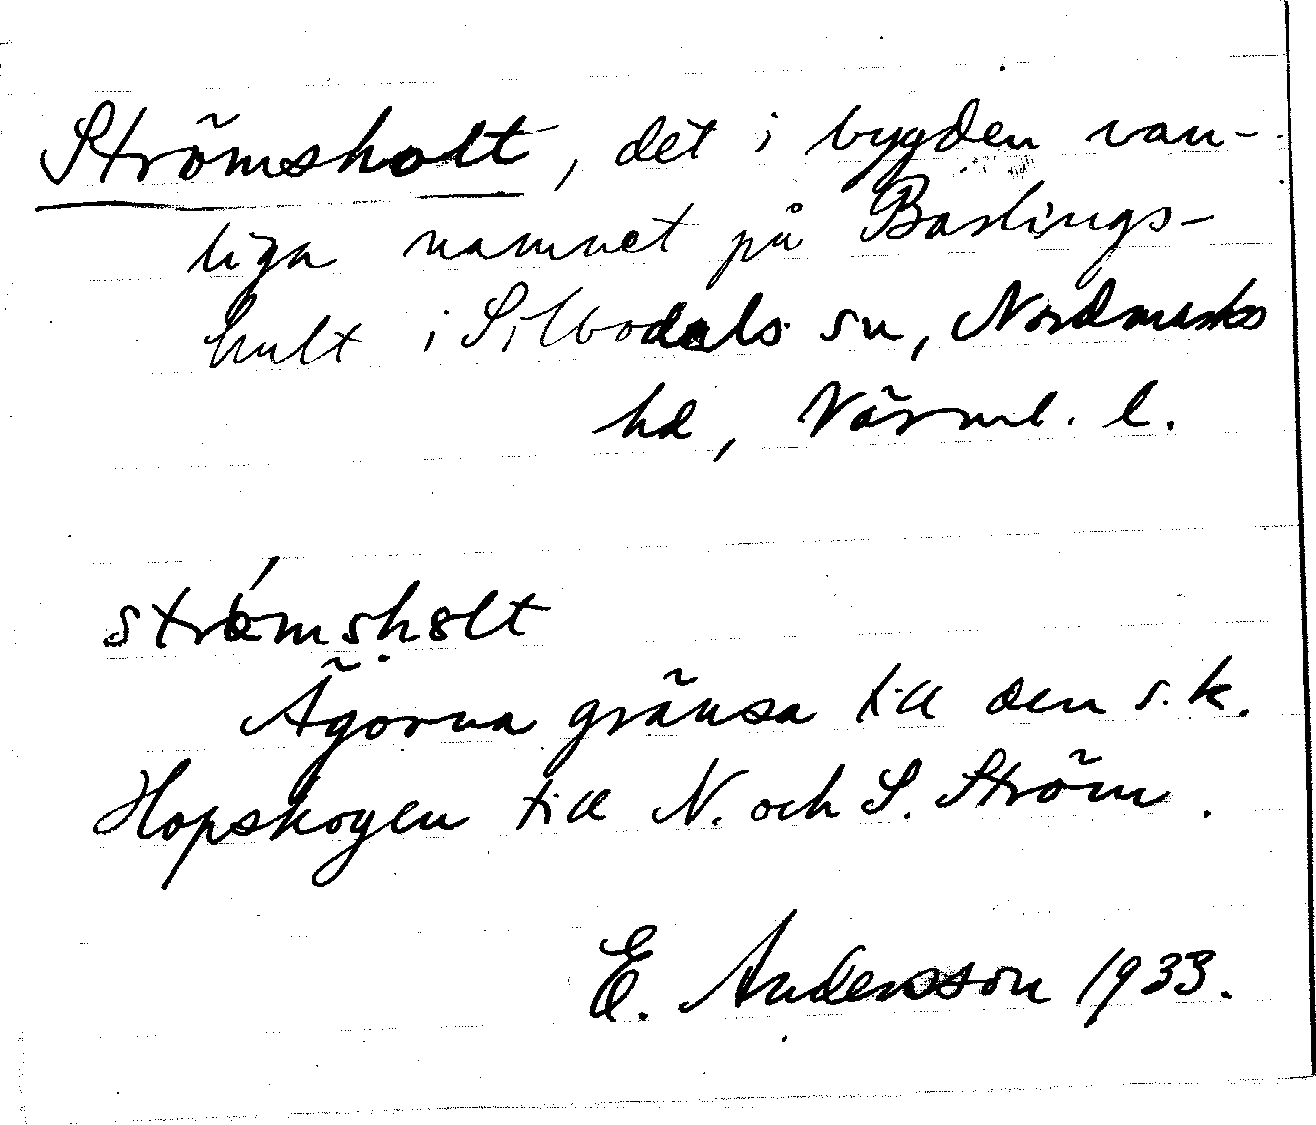 Strömsholt, det i bygden van-
liga namnet på Bastings-
hult i Silbodals sn, Nordmarks
hd, Värml. l.
strömsholt
Ägorna gränsa till den s.k.
Hopskogen till N. och S. Ström.
E. Andersson 1933.